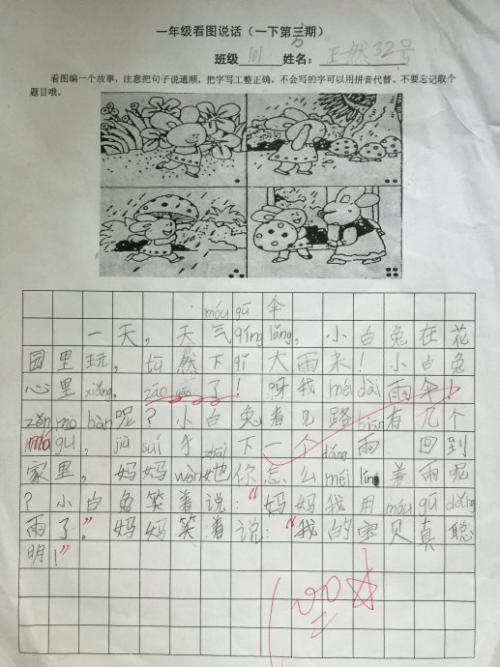 一年级看图说话（一下第三期）
班级 101 姓名： 王然32号
看图编一个故事，注意把句子说通顺，把字写工整正确，不会写的字可以用拼音代替。不要忘记取个
题目哦。
móu gū 伞
一天，天气qíng lǎng，小白兔在花
园里玩，tū然下qǐ大雨来！小白兔
心里xiǎng，zāo gāo了！呀我méi dài雨伞
zěn mo bàn呢？小白兔看见路biān有几个
mó gu，jiù suí手zhāi下一个dǎng雨 回到
家里，妈妈wèn她你怎么méi lín着雨呢
？小白兔笑着说：“妈妈我用móu gū dǎng
雨了。”妈妈笑着说：“我的宝贝真聪
明！”